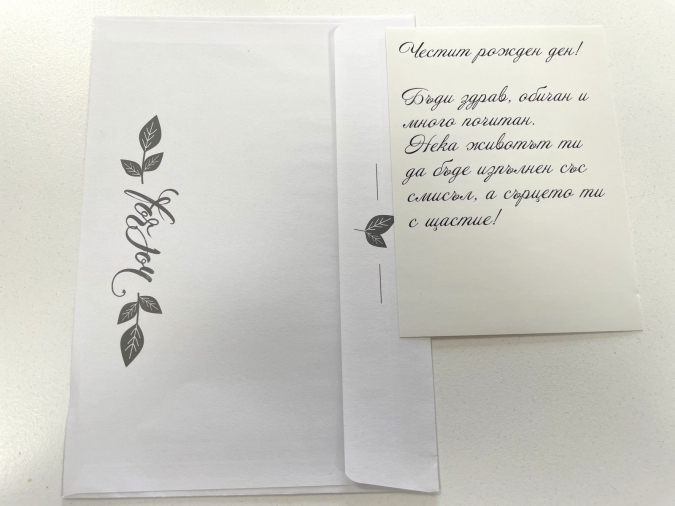 Честит рожден ден!
Бъди здрав, обичан и
много почитан.
Нека животът ти
да бъде изпълнен със
смисъл, а сърцето ти
с щастие!
for you